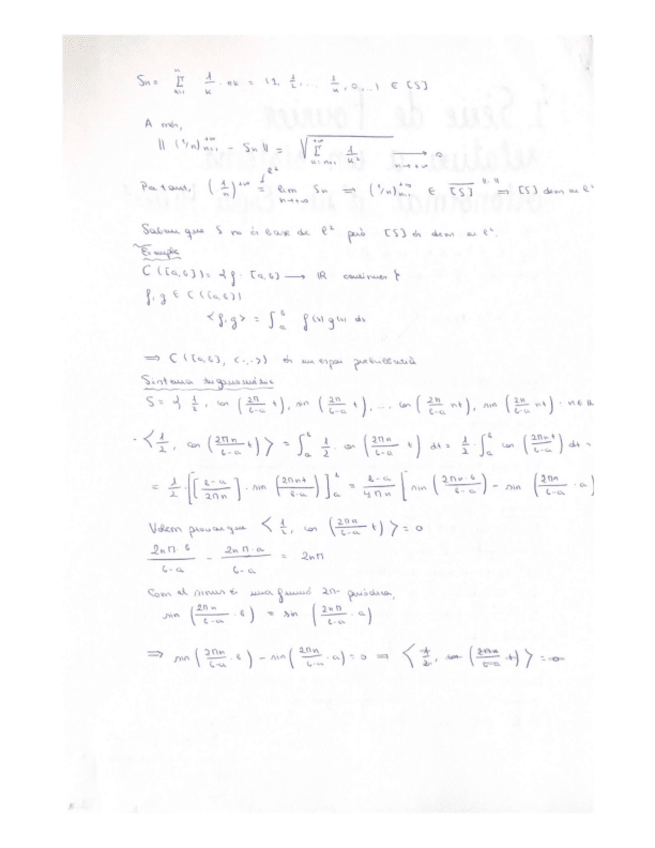 Sn = Σ_{k=1}^{n} 1/k · nk = (1, 1/2, ... 1/n, 0, ...) ∈ [S]
A més,
|| (1/n)_{n=1}^{+∞} - Sn || = √(Σ_{k=n+1}^{+∞} 1/k²) ⟶_{n→+∞} 0
Per tant, (1/n)^{+∞} = lim_{n→+∞} Sn ⟹ (1/n)_{n=1}^{+∞} ∈ \overline{[S]}^{||·||} ⟹ [S] dens en ℓ²
Sabem que S no és base de ℓ² però [S] és dens en ℓ².
Exemple
C([a,b]) = {f: [a,b] ⟶ ℝ contínues}
f, g ∈ C([a,b])
<f, g> = ∫_a^b f(x) g(x) dx
⟹ C([a,b], <·,·>) és un espai prehilbertià
Sistema trigonomètric
S = { 1/2, cos (2π/(b-a) t), sin (2π/(b-a) t), ... cos (2π/(b-a) nt), sin (2π/(b-a) nt) : n ∈ ℕ
· < 1/2, cos (2πn/(b-a) t) > = ∫_a^b 1/2 · cos (2πn/(b-a) t) dt = 1/2 · ∫_a^b cos (2πnt/(b-a)) dt =
= 1/2 · [[(b-a)/2πn] · sin (2πnt/(b-a))]_a^b = (b-a)/4πn [sin (2πn·b/(b-a)) - sin (2πn/(b-a) · a)
Volem provar que < 1/2, cos (2πn/(b-a) t) > = 0
2nπ·b/(b-a) - 2nπ·a/(b-a) = 2nπ
Com el sinus és una funció 2π- periòdica,
sin (2πn/(b-a) · b) = sin (2nπ/(b-a) · a)
⟹ sin (2πn/(b-a) · b) - sin (2πn/(b-a) · a) = 0 ⟹ < 1/2, cos (2πn/(b-a) t) > = 0